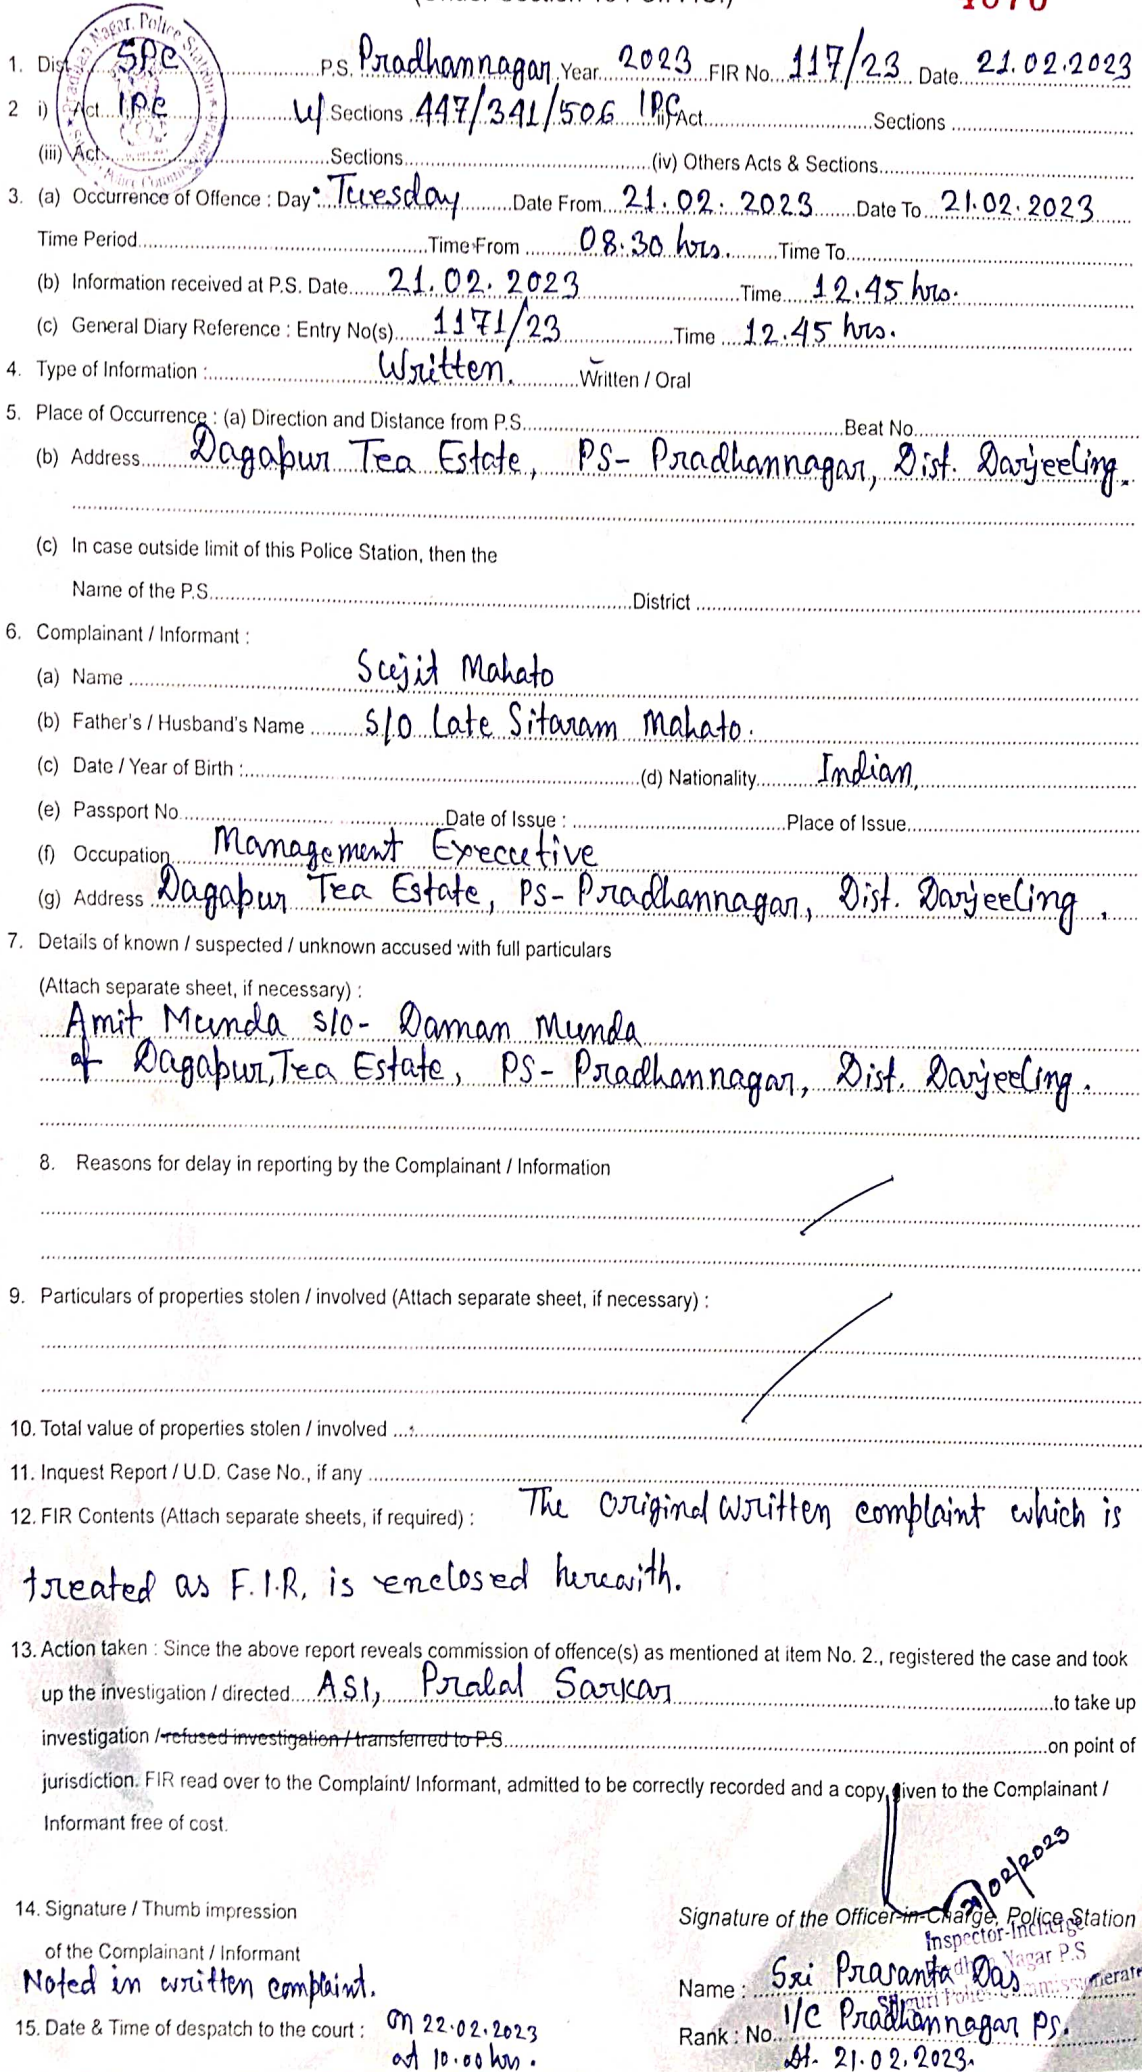 1. Dist. SPC P.S. Pradhannagar Year 2023 FIR No. 117/23 Date 21.02.2023
2 i) Act IPC u/ Sections 447/341/506 IPC ii) Act Sections
(iii) Act Sections (iv) Others Acts & Sections
3. (a) Occurrence of Offence : Day : Tuesday Date From 21.02.2023 Date To 21.02.2023
Time Period Time From 08.30 hrs. Time To
(b) Information received at P.S. Date 21.02.2023 Time 12.45 hrs.
(c) General Diary Reference : Entry No(s) 1171/23 Time 12.45 hrs.
4. Type of Information : Written. Written / Oral
5. Place of Occurrence : (a) Direction and Distance from P.S. Beat No.
(b) Address Dagapur Tea Estate, PS- Pradhannagar, Dist. Darjeeling.
(c) In case outside limit of this Police Station, then the
Name of the P.S. District
6. Complainant / Informant :
(a) Name Sujit Mahato
(b) Father's / Husband's Name S/O Late Sitaram Mahato.
(c) Date / Year of Birth : (d) Nationality Indian,
(e) Passport No. Date of Issue : Place of Issue
(f) Occupation Management Executive
(g) Address Dagapur Tea Estate, PS- Pradhannagar, Dist. Darjeeling.
7. Details of known / suspected / unknown accused with full particulars
(Attach separate sheet, if necessary) :
Amit Munda S/O- Daman Munda
of Dagapur, Tea Estate, PS- Pradhannagar, Dist. Darjeeling.
8. Reasons for delay in reporting by the Complainant / Information
9. Particulars of properties stolen / involved (Attach separate sheet, if necessary) :
10. Total value of properties stolen / involved
11. Inquest Report / U.D. Case No., if any
12. FIR Contents (Attach separate sheets, if required) : The original written complaint which is
treated as F.I.R, is enclosed herewith.
13. Action taken : Since the above report reveals commission of offence(s) as mentioned at item No. 2., registered the case and took
up the investigation / directed ASI, Pralal Sarkar to take up
investigation / refused investigation / transferred to P.S. on point of
jurisdiction. FIR read over to the Complaint/ Informant, admitted to be correctly recorded and a copy given to the Complainant /
Informant free of cost.
21/02/2023
14. Signature / Thumb impression
of the Complainant / Informant
Noted in written complaint.
15. Date & Time of despatch to the court : On 22.02.2023
at 10.00 hrs.
Signature of the Officer-in-Charge, Police Station
Inspector-Incharge
Nagar P.S
Name : Sri Prasanta Das
Rank : No. I/C Pradhannagar PS.
Dt- 21.02.2023.